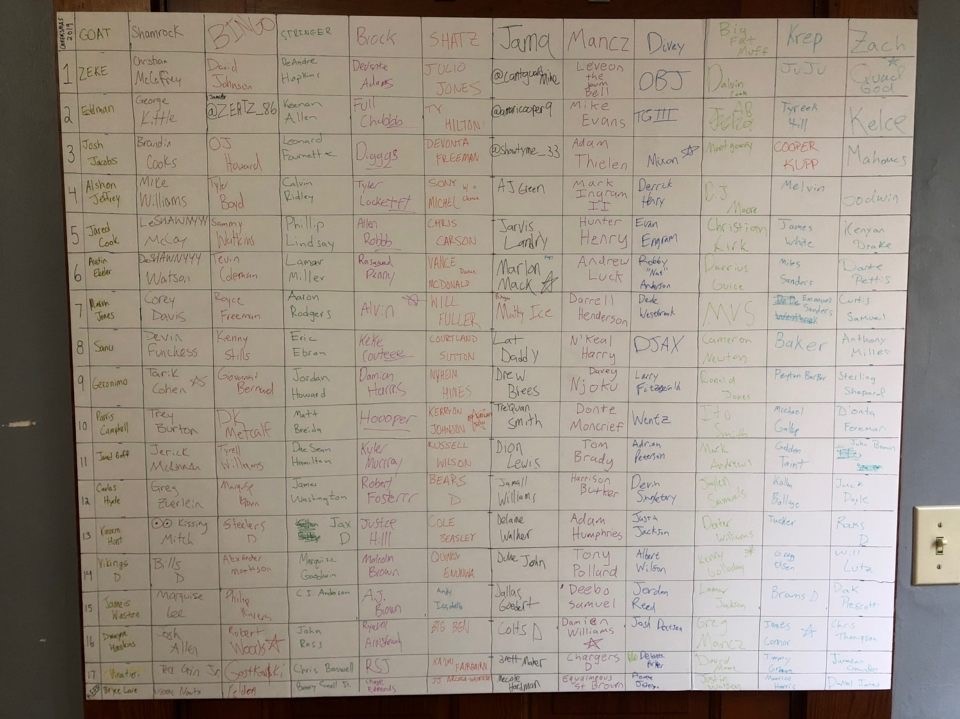 2019 GOAT Shamrock BINGO STRINGER Brock SHATZ Jama Mancz Davey Big Fat Muff Krep Zach
1 ZEKE Christian McCaffrey David Johnson DeAndre Hopkins Davante Adams JULIO JONES @cantguardmike Leveon the Bell OBJ Dalvin JuJu Quad God
2 Edelman George Kittle @ZERTZ_86 Keenan Allen Full Chubbb TY HILTON Mike Evans TG III AB Tyreek Hill Kelce
3 Josh Jacobs Brandin Cooks OJ Howard Leonard Fournette Digggs DEVONTA FREEMAN @showtyme_33 Adam Thielen Mixon Montgomery COOPER KUPP Mahomes
4 Alshon Jeffrey Mike Williams Tyler Boyd Calvin Ridley Tyler Lockettt SONY MICHEL AJ Green Mark Ingram II Derrick Henry DJ Moore Melvin Godwin
5 Jared Cook LeSHAWNYYY McCoy Sammy Watkins Phillip Lindsay Allen Robbb CHRIS CARSON Jarvis Landry Hunter Henry Evan Engram Christian Kirk James White Kenyan Drake
6 Austin Ekeler DeSHAWNYYY Watson Tevin Coleman Lamar Miller Rashaad Penny VANCE MCDONALD Marlon Mack Andrew Luck Robby Anderson Derrius Guice Miles Sanders Dante Pettis
7 Marvin Jones Corey Davis Royce Freeman Aaron Rodgers Alvin WILL FULLER Matty Ice Darrell Henderson Dede Westbrook MVS Emmanuel Sanders Curtis Samuel
8 Sanu Devin Funchess Kenny Stills Eric Ebron Keke Couteee COURTLAND SUTTON Lat Daddy N'Keal Harry DJAX Cameron Newton Baker Anthony Miller
9 Geronimo Tarik Cohen Giovanni Bernard Jordan Howard Damian Harris NYHEIM HINES Drew Brees Davey Njoku Larry Fitzgerald Ronald Jones Peyton Barber Sterling Shepard
10 Parris Campbell Trey Burton DK Metcalf Matt Breida Hooooper KERRYON JOHNSON Tre'Quan Smith Donte Moncrief Wentz Ito Smith Michael Gallup D'onta Foreman
11 Jared Goff Jerick McKinnon Tyrell Williams Dae Sean Hamilton Kyler Murray RUSSELL WILSON Dion Lewis Tom Brady Adrian Peterson Mark Andrews Golden Taint John Brown
12 Carlos Hyde Greg Zuerlein Marquise James Washington Robert Fosterrr BEARS D Jamall Williams Harrison Butker Devin Singletary Samuels Kalen Ballage Jack Doyle
13 Kareem Hunt Kissing Mitch Steelers D Jax D Justice Hill COLE BEASLEY Delanie Walker Adam Humphries Justin Jackson Dexter Williams Tucker Rams D
14 Vikings D Bills D Alexander Mattison Marquise Goodwin Malcolm Brown QUINCY ENUNWA Duke John Tony Pollard Albert Wilson Kenny Golladay Greg Olsen Will Lutz
15 Jameis Winston Marquise Lee Philip Rivers C.J. Anderson A.J. Brown Andy Isabella Dallas Goedert Deebo Samuel Jordan Reed Lamar Jackson Browns D Dak Prescott
16 Dwayne Haskins Josh Allen Robert Woods John Ross Ryquell Armstead BIG BEN Colts D Damien Williams Josh Greg Mancz James Connor Chris Thompson
17 Ted Ginn Jr Chris Boswell RSJ KAIMI FAIRBAIRN Brett Maher Chargers D Devante Parker David Jimmy Graham Jamison Crowder
Bryce Love Moncy Matt Mecole Hardman Equanimeous St Brown Justice Watson Maurice Harris Daniel Jones